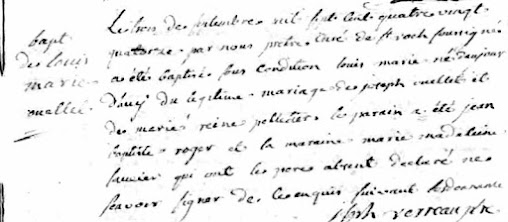 bapt
de louis
marie
ouellet
Le trois de septembre mil sept cent quatre vingt
quatorze par nous pretre curé de st roch soussigné
a été baptisé sous condition louis marie né d'aujour
d'huy du légitime mariage de joseph ouellet et
de marie reine pelletier le parain a été jean
baptiste roger et la maraine marie madeleine
qui ont le pere absent declaré ne
scavoir signer de ce enquis suivant l'ordonnance
verreau ptre